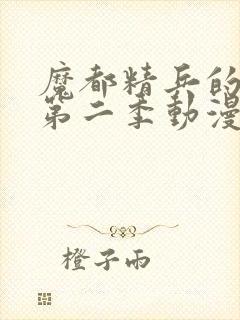 魔都精兵的
第二季動漫
橙子雨